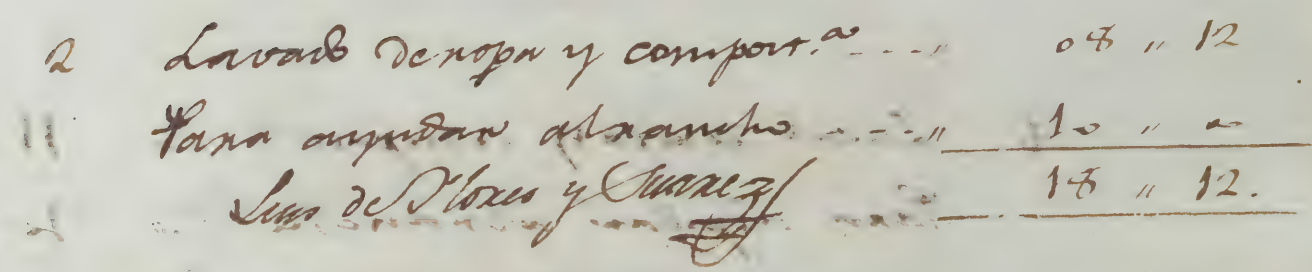 2 Lavado de ropa y compost.ª - - - „ 08 „ 12
Para ayudar al rancho - - - - „ 10 „ "
Luis de Flores y Suarez 18 „ 12.